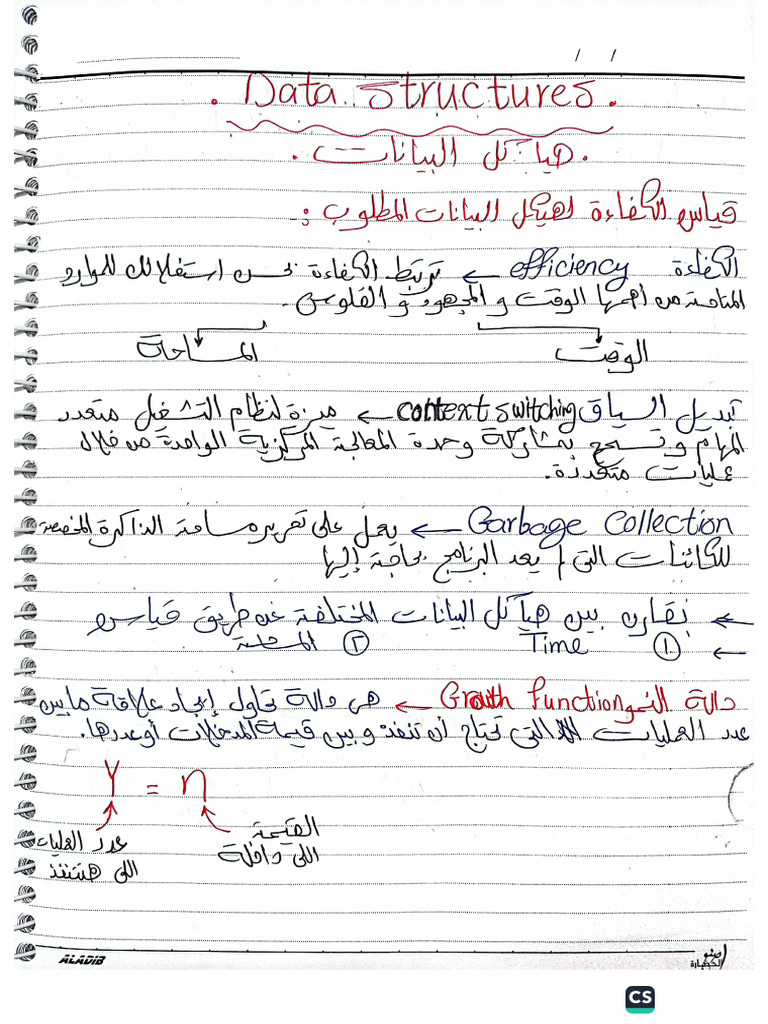 / /
. Data Structures .
. هياكل البيانات .
قياس الكفاءة لهيكل البيانات المطلوب :
الكفاءة efficiency ← ترتبط الكفاءة بحسن استغلالك للموارد
المتاحة من أهمها الوقت و المجهود و الفلوس .
الوقت المساحة
تبديل السياق context switching ← ميزة لنظام التشغيل متعدد
المهام وتسمح بمشاركة وحدة المعالجة المركزية الواحدة من خلال
عمليات متعددة .
Garbage Collection ← يعمل على تحرير مساحة الذاكرة المخصصة
للكائنات التي لم يعد البرنامج بحاجة إليها
← نقارن بين هياكل البيانات المختلفة عن طريق قياس
← ① Time ② المساحة
دالة النمو Growth function ← هي دالة تحاول إيجاد علاقة ما بين
عدد العمليات التي تحتاج أن تنفذ و بين قيمة المدخلات أو عددها .
Y = n
عدد العمليات اللي هتتنفذ
القيمة اللي داخلة
ALADIB
اصنع الحضارة
CS